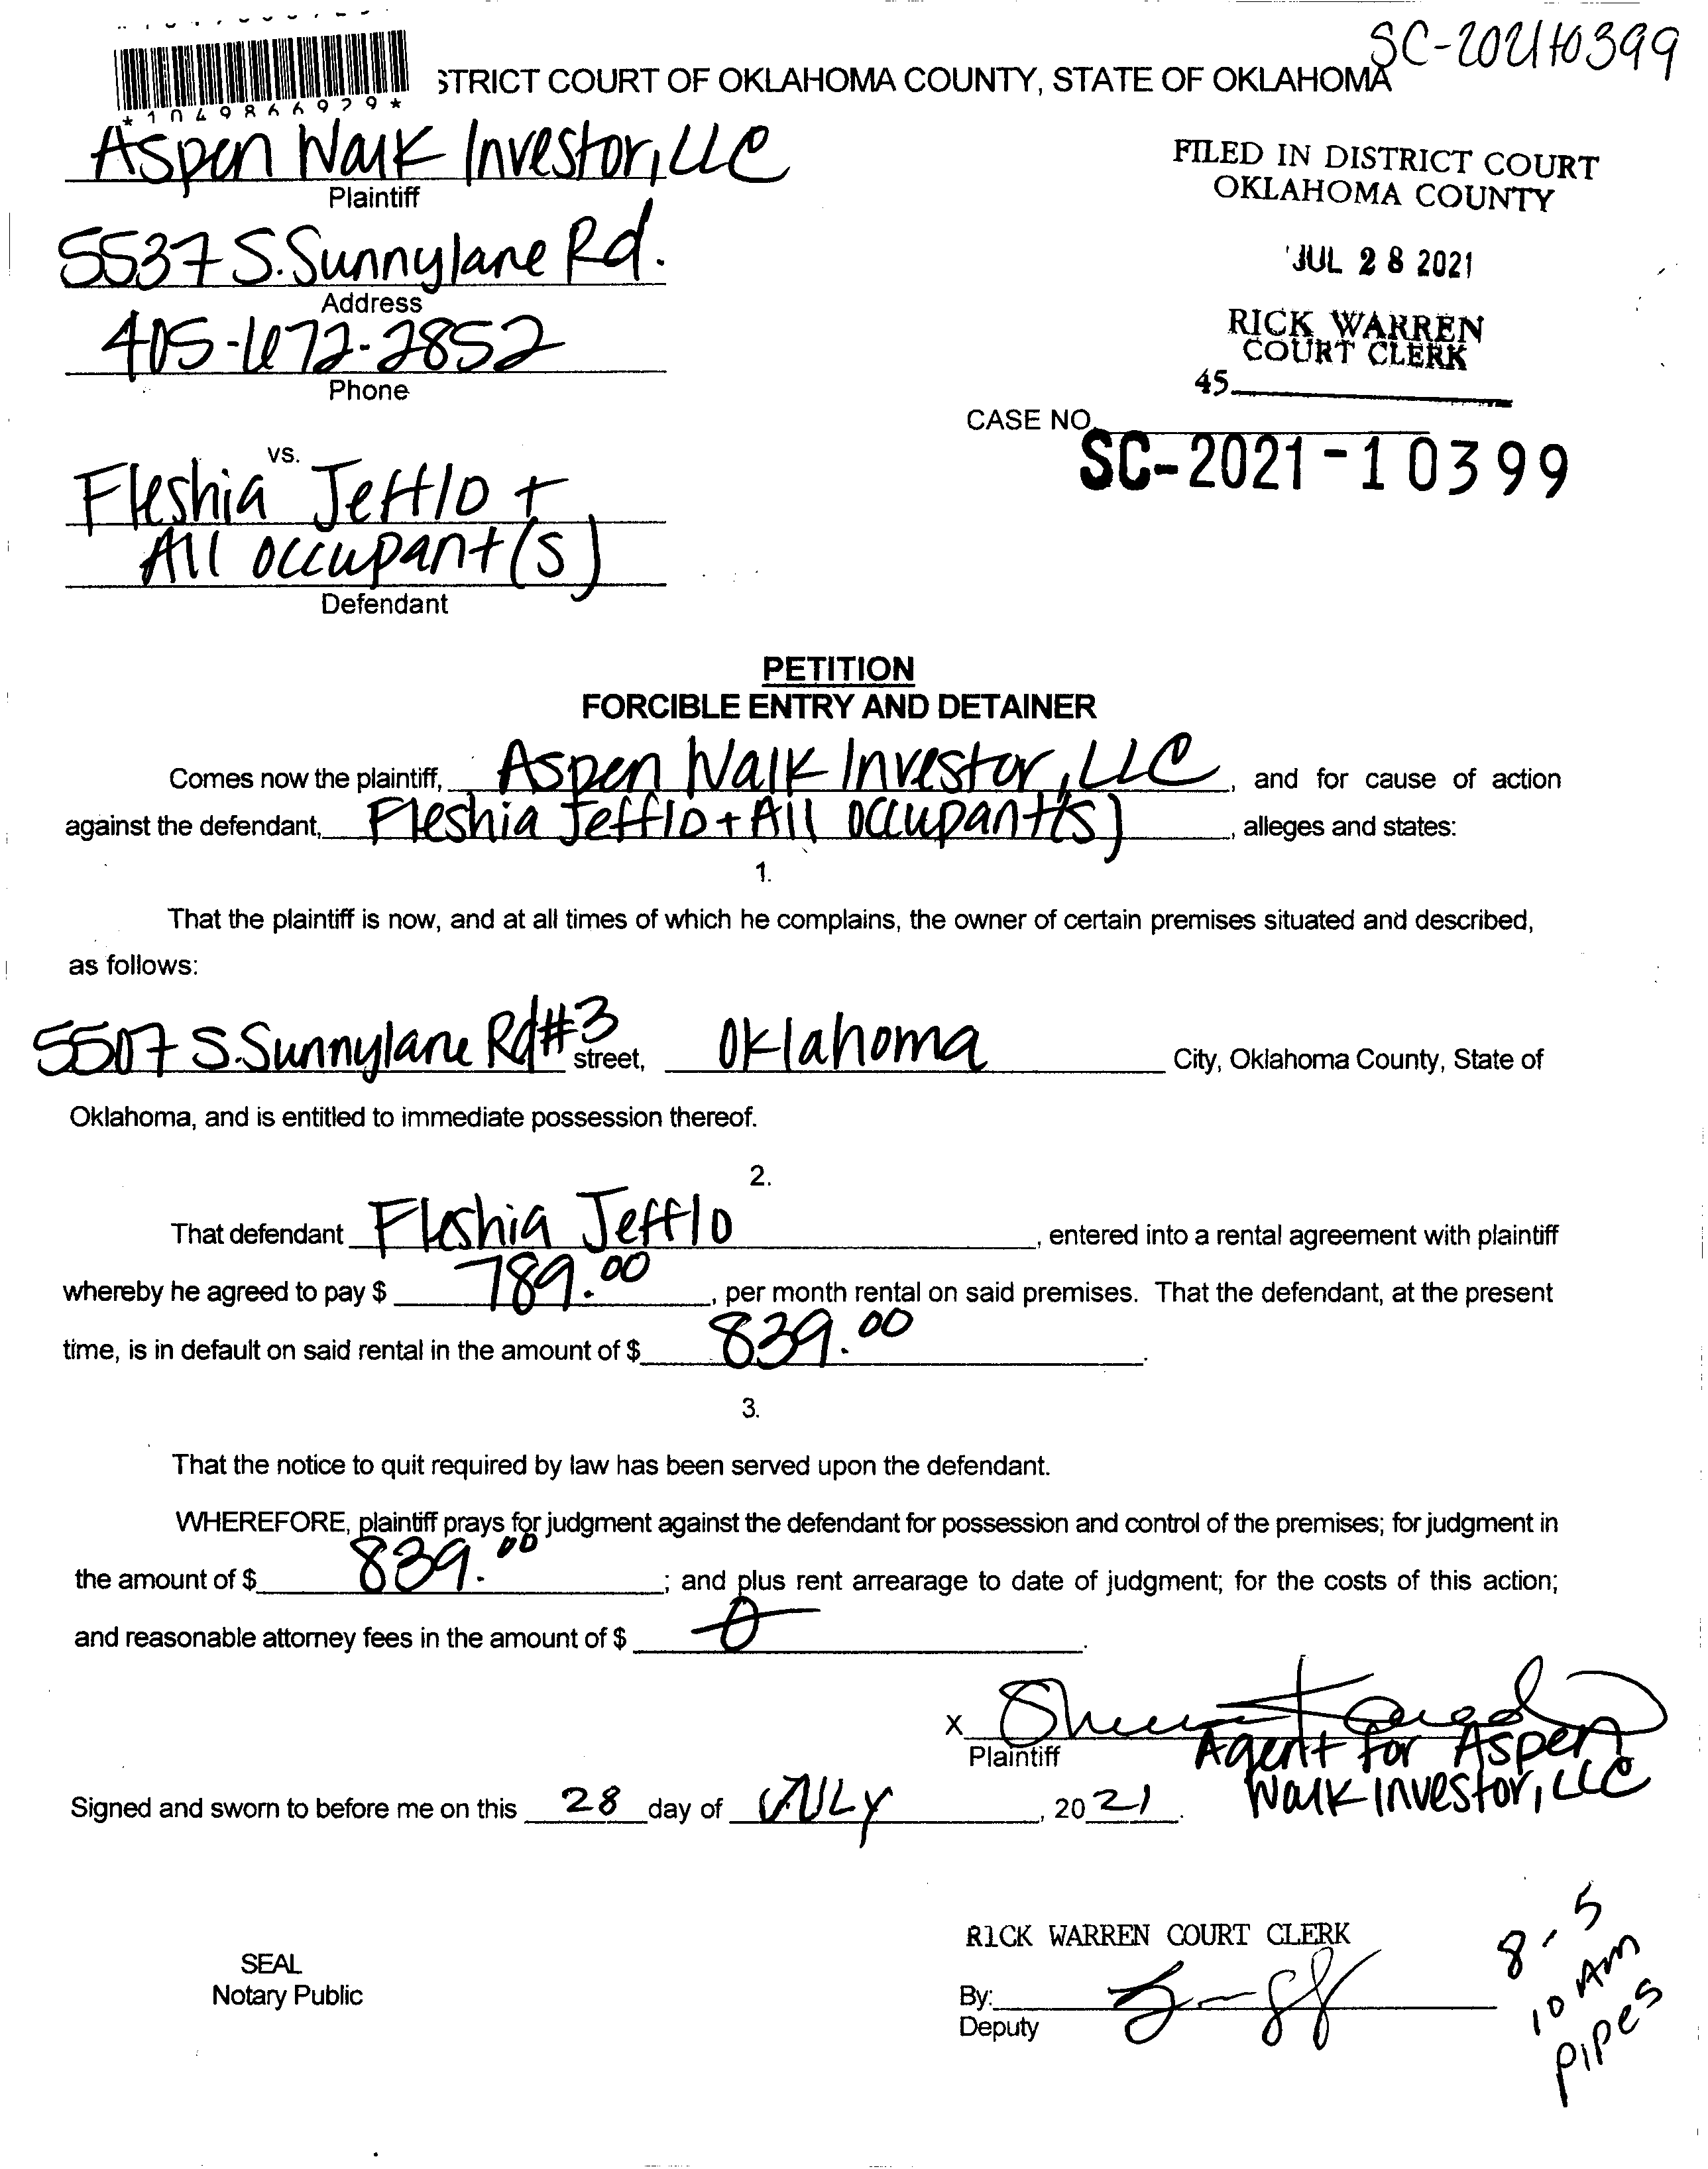 SC-202110399
STRICT COURT OF OKLAHOMA COUNTY, STATE OF OKLAHOMA
*1049866929*
Aspen Walk Investor, LLC
Plaintiff
FILED IN DISTRICT COURT
OKLAHOMA COUNTY
5537 S. Sunnylane Rd.
Address
JUL 28 2021
405-672-2852
Phone
RICK WARREN
COURT CLERK
45
CASE NO.
SC-2021-10399
vs.
Fleshia Jefflo +
All occupant(s)
Defendant
PETITION
FORCIBLE ENTRY AND DETAINER
Comes now the plaintiff, Aspen Walk Investor, LLC, and for cause of action
against the defendant, Fleshia Jefflo + All occupant(s), alleges and states:
1.
That the plaintiff is now, and at all times of which he complains, the owner of certain premises situated and described,
as follows:
5507 S. Sunnylane Rd #3 street, Oklahoma City, Oklahoma County, State of
Oklahoma, and is entitled to immediate possession thereof.
2.
That defendant Fleshia Jefflo, entered into a rental agreement with plaintiff
whereby he agreed to pay $ 789.00, per month rental on said premises. That the defendant, at the present
time, is in default on said rental in the amount of $ 839.00.
3.
That the notice to quit required by law has been served upon the defendant.
WHEREFORE, plaintiff prays for judgment against the defendant for possession and control of the premises; for judgment in
the amount of $ 839.00; and plus rent arrearage to date of judgment; for the costs of this action;
and reasonable attorney fees in the amount of $ 0.
X
Plaintiff
Agent for Aspen
Walk Investor, LLC
Signed and sworn to before me on this 28 day of JULY, 2021.
RICK WARREN COURT CLERK
SEAL
Notary Public
By:
Deputy
8-5
10 Am
Pipes